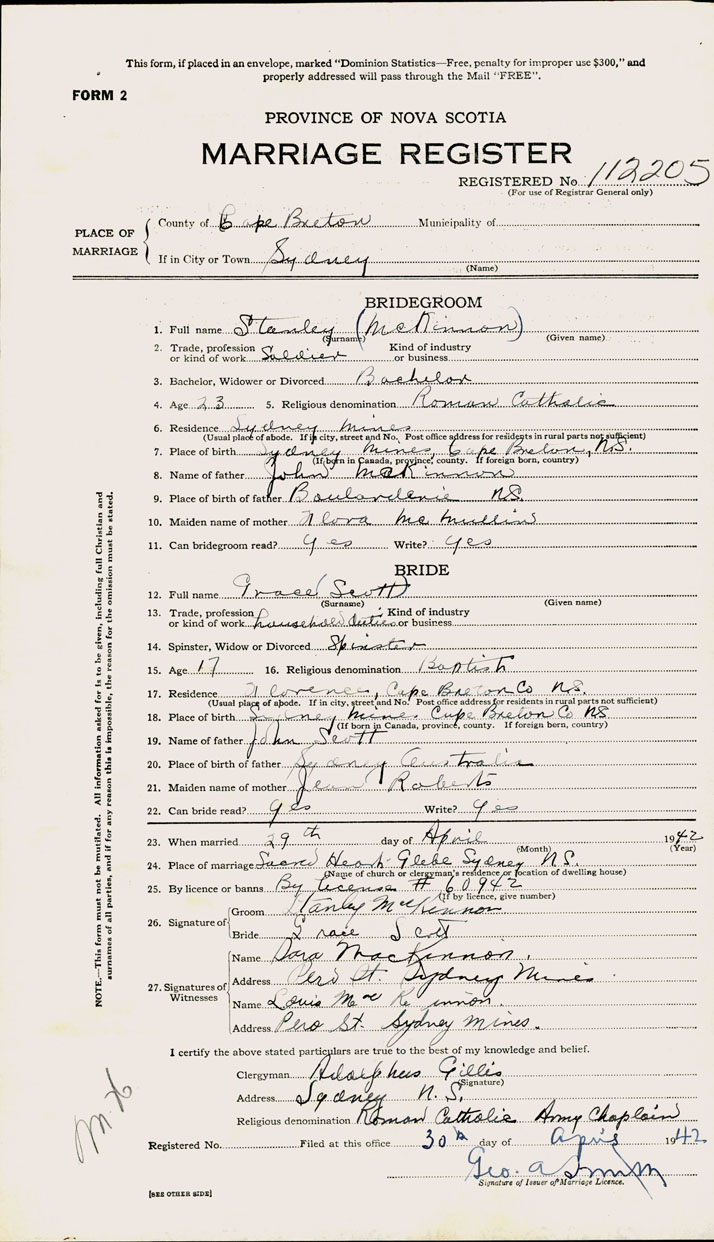 This form, if placed in an envelope, marked "Dominion Statistics—Free, penalty for improper use $300," and
properly addressed will pass through the Mail "FREE".
FORM 2
PROVINCE OF NOVA SCOTIA
MARRIAGE REGISTER
REGISTERED No. 112205
(For use of Registrar General only)
PLACE OF MARRIAGE
County of Cape Breton Municipality of
If in City or Town Sydney
(Name)
BRIDEGROOM
1. Full name Stanley (McKinnon)
(Surname) (Given name)
2. Trade, profession or kind of work Soldier Kind of industry or business
3. Bachelor, Widower or Divorced Bachelor
4. Age 23 5. Religious denomination Roman Catholic
6. Residence Sydney Mines
(Usual place of abode. If in city, street and No. Post office address for residents in rural parts not sufficient)
7. Place of birth Sydney Mines, Cape Breton, N.S.
(If born in Canada, province, county. If foreign born, country)
8. Name of father John McKinnon
9. Place of birth of father Boulardarie N.S.
10. Maiden name of mother Flora McMullin
11. Can bridegroom read? Yes Write? Yes
BRIDE
12. Full name Grace (Scott)
(Surname) (Given name)
13. Trade, profession or kind of work household duties Kind of industry or business
14. Spinster, Widow or Divorced Spinster
15. Age 17 16. Religious denomination Baptist
17. Residence Florence, Cape Breton Co N.S.
(Usual place of abode. If in city, street and No. Post office address for residents in rural parts not sufficient)
18. Place of birth Sydney Mines Cape Breton Co N.S.
(If born in Canada, province, county. If foreign born, country)
19. Name of father John Scott
20. Place of birth of father Sydney Australia
21. Maiden name of mother Jean Roberts
22. Can bride read? Yes Write? Yes
23. When married 29th day of April 1942
(Month) (Year)
24. Place of marriage Sacred Heart Glebe Sydney N.S.
(Name of church or clergyman's residence or location of dwelling house)
25. By licence or banns By license # 60942
(If by licence, give number)
26. Signature of
Groom Stanley McKinnon
Bride Grace Scott
27. Signatures of Witnesses
Name Sara MacKinnon.
Address Pero St. Sydney Mines
Name Louis McKinnon.
Address Pero St. Sydney Mines.
I certify the above stated particulars are true to the best of my knowledge and belief.
Clergyman Adolphus Gillis
(Signature)
Address Sydney N.S.
Religious denomination Roman Catholic Army Chaplain
Registered No. Filed at this office 30th day of April 1942
Geo. A
Signature of Issuer of Marriage Licence.
[SEE OTHER SIDE]
NOTE.—This form must not be mutilated. All information asked for is to be given, including full Christian and
surnames of all parties, and if for any reason this is impossible, the reason for the omission must be stated.